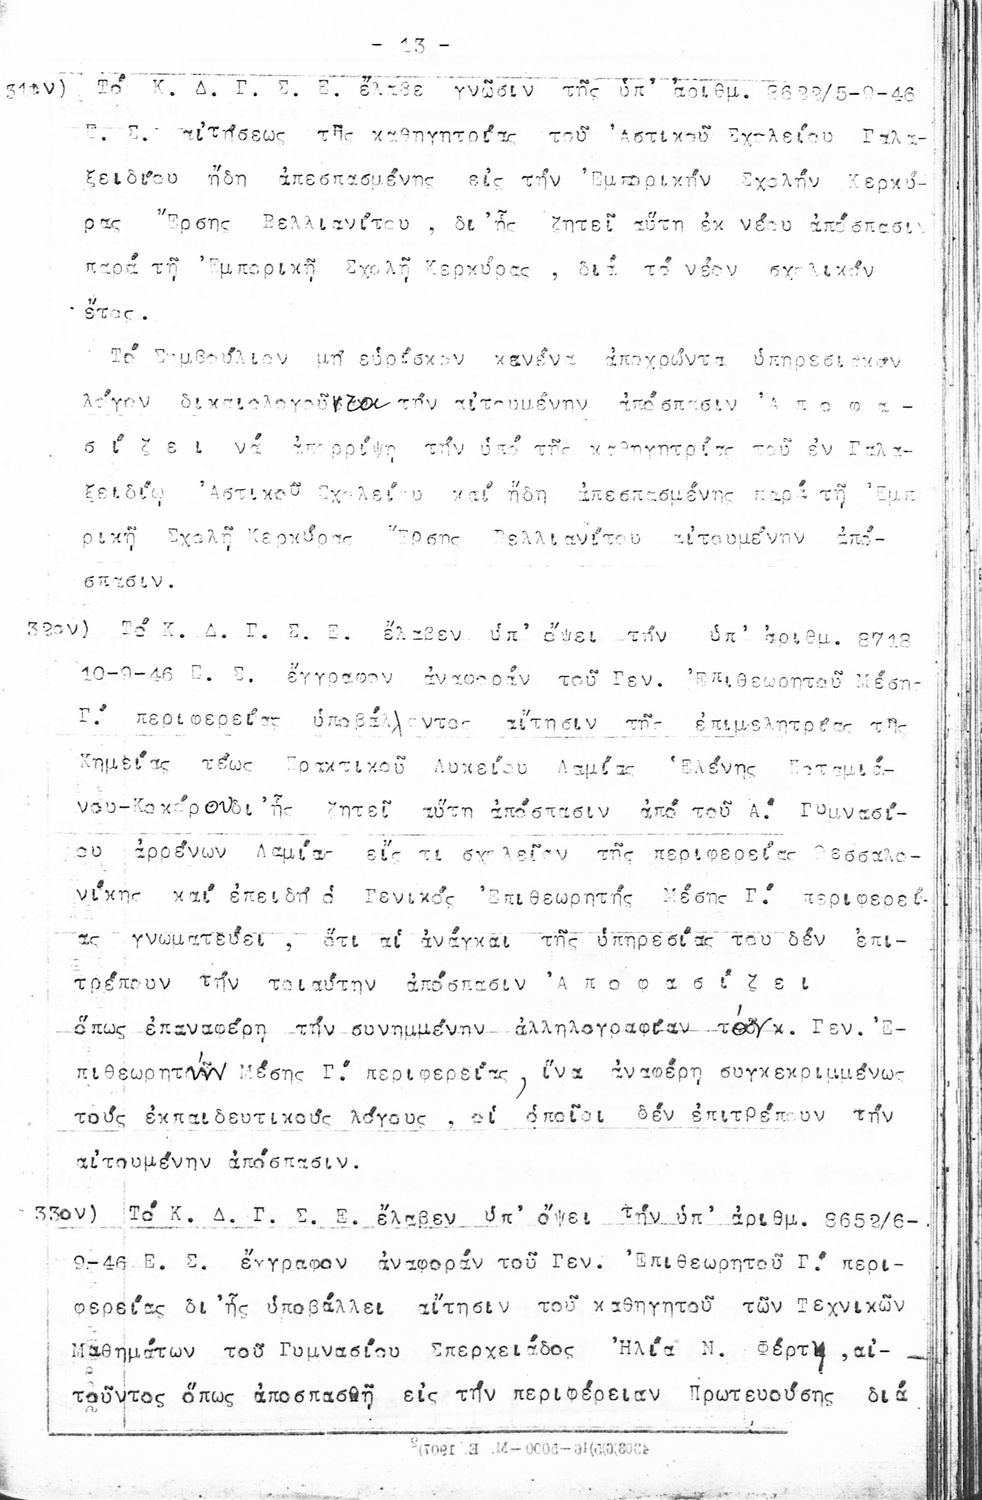 - 13 -
31ον) Τό Κ. Δ. Γ. Σ. Ε. ἔλαβε γνῶσιν τῆς ὑπ' ἀριθμ. 8622/5-9-46
Ε. Σ. αἰτήσεως τῆς καθηγητρίας τοῦ 'Αστικοῦ Σχολείου Γαλα-
ξειδίου ἤδη ἀπεσπασμένης εἰς τήν 'Εμπορικήν Σχολήν Κερκύ-
ρας Ἔρσης Βελλιανίτου , δι 'ἧς ζητεῖ αὕτη ἐκ νέου ἀπόσπασιν
παρά τῇ 'Εμπορικῇ Σχολῇ Κερκύρας , διά τό νέον σχολικόν
ἔτος .
Τό Συμβούλιον μή εὑρίσκον κανένα ἀποχρῶντα ὑπηρεσιακον
λόγον δικαιολογοῦντα τήν αἰτουμένην ἀπόσπασιν 'Α π ο φ α -
σ ί ζ ε ι νά ἀπορρίψῃ τήν ὑπό τῆς καθηγητρίας τοῦ ἐν Γαλα-
ξειδίῳ 'Αστικοῦ Σχολείου καί ἤδη ἀπεσπασμένης παρά τῇ 'Εμπ
ρικῇ Σχολῇ Κερκύρας Ἔρσης Βελλιανίτου αἰτουμένην ἀπό-
σπασιν.
32ον) Τό Κ. Δ. Γ. Σ. Ε. ἔλαβεν ὑπ' ὄψει τήν ὑπ' ἀριθμ. 8718
10-9-46 Ε. Σ. ἔγγραφον ἀναφοράν τοῦ Γεν. 'Επιθεωρητοῦ Μέσης
Γ.' περιφερείας ὑποβάλλοντος αἴτησιν τῆς ἐπιμελητρίας τῆς
Χημείας τέως Πρακτικοῦ Λυκείου Λαμίας 'Ελένης Ποταμιά-
νου-Κοκόρου δι 'ἧς ζητεῖ αὕτη ἀπόσπασιν ἀπό τοῦ Α.' Γυμνασί-
ου ἀρρένων Λαμίας εἴς τι σχολεῖον τῆς περιφερείας Θεσσαλο-
νίκης καί ἐπειδή ὁ Γενικός 'Επιθεωρητής Μέσης Γ.' περιφερεί-
ας γνωματεύει , ὅτι αἱ ἀνάγκαι τῆς ὑπηρεσίας του δέν ἐπι-
τρέπουν τήν τοιαύτην ἀπόσπασιν 'Α π ο φ α σ ί ζ ε ι
ὅπως ἐπαναφέρῃ τήν συνημμένην ἀλληλογραφίαν τόν κ. Γεν. 'Ε-
πιθεωρητήν Μέσης Γ.' περιφερείας, ἵνα ἀναφέρῃ συγκεκριμμένως
τούς ἐκπαιδευτικούς λόγους , οἱ ὁποῖοι δέν ἐπιτρέπουν τήν
αἰτουμένην ἀπόσπασιν.
33ον) Τό Κ. Δ. Γ. Σ. Ε. ἔλαβεν ὑπ' ὄψει τήν ὑπ' ἀριθμ. 8652/6-
9-46 Ε. Σ. ἔγγραφον ἀναφοράν τοῦ Γεν. 'Επιθεωρητοῦ Γ.' περι-
φερείας δι 'ἧς ὑποβάλλει αἴτησιν τοῦ καθηγητοῦ τῶν Τεχνικῶν
Μαθημάτων τοῦ Γυμνασίου Σπερχειάδος Ἠλία Ν. Φέρτη ,αἰ-
τοῦντος ὅπως ἀποσπασθῇ εἰς τήν περιφέρειαν Πρωτευούσης διά